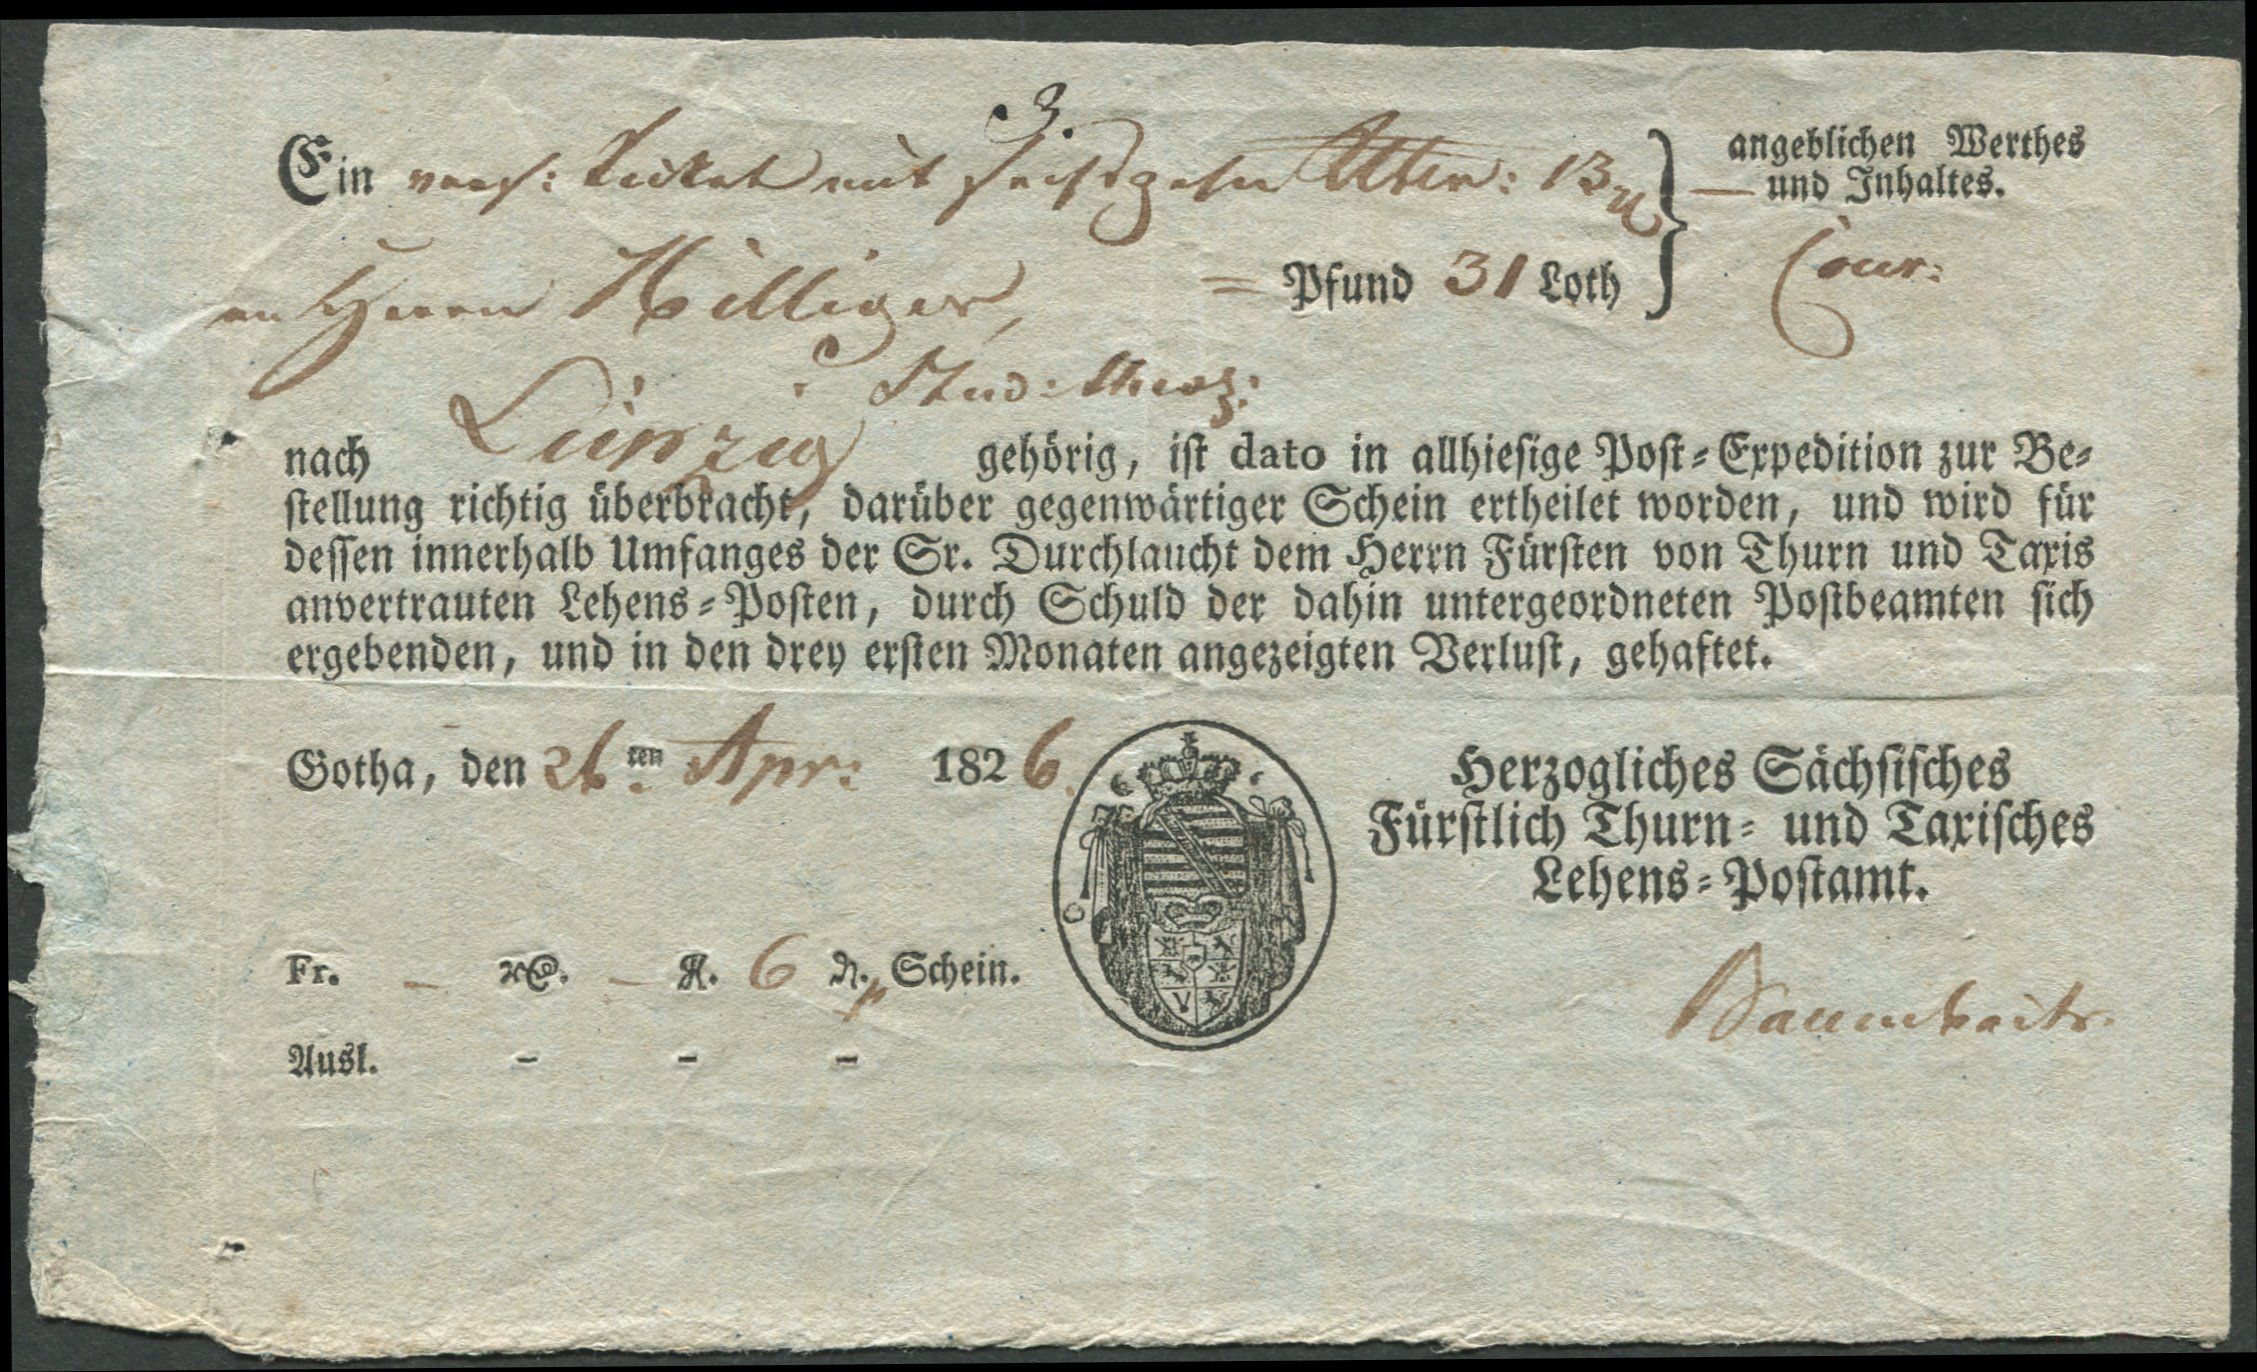 3.
Ein vers: Packet mit sechszehn Thlr: 13 angeblichen Werthes
und Inhaltes.
an Herrn Hilliger, = Pfund 31 Loth Cour:
Stud: theol:
nach Leipzig gehörig, iſt dato in allhieſige Poſt-Expedition zur Be-
ſtellung richtig überbracht, darüber gegenwärtiger Schein ertheilet worden, und wird für
deſſen innerhalb Umfanges der Sr. Durchlaucht dem Herrn Fürſten von Thurn und Taxis
anvertrauten Lehens-Poſten, durch Schuld der dahin untergeordneten Poſtbeamten ſich
ergebenden, und in den drey erſten Monaten angezeigten Verluſt, gehaftet.
Gotha, den 26.ten Apr: 1826.
Herzogliches Sächſiſches
Fürſtlich Thurn- und Taxiſches
Lehens-Poſtamt.
Fr. – – 6 Schein.
Ausl. - - -